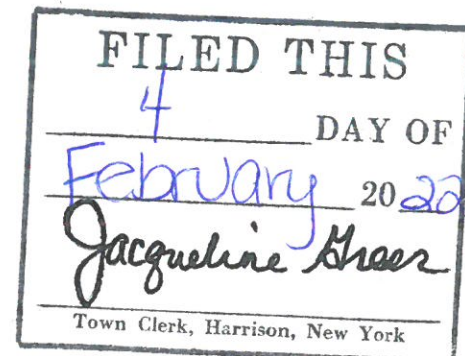 FILED THIS
4 DAY OF
February 2022
Jacqueline Greer
Town Clerk, Harrison, New York